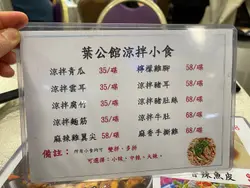 葉公館涼拌小食
涼拌青瓜 35/碟 檸檬雞腳 58/碟
涼拌雲耳 35/碟 涼拌豬耳 58/碟
涼拌腐竹 35/碟 涼拌豬肚絲 68/碟
涼拌麵筋 35/碟 涼拌牛肚 68/碟
麻辣雞翼尖 58/碟 麻香手撕雞 68/碟
備註: 所有小食均可 雙拼、多拼
可選擇: 小辣、中辣、大辣。